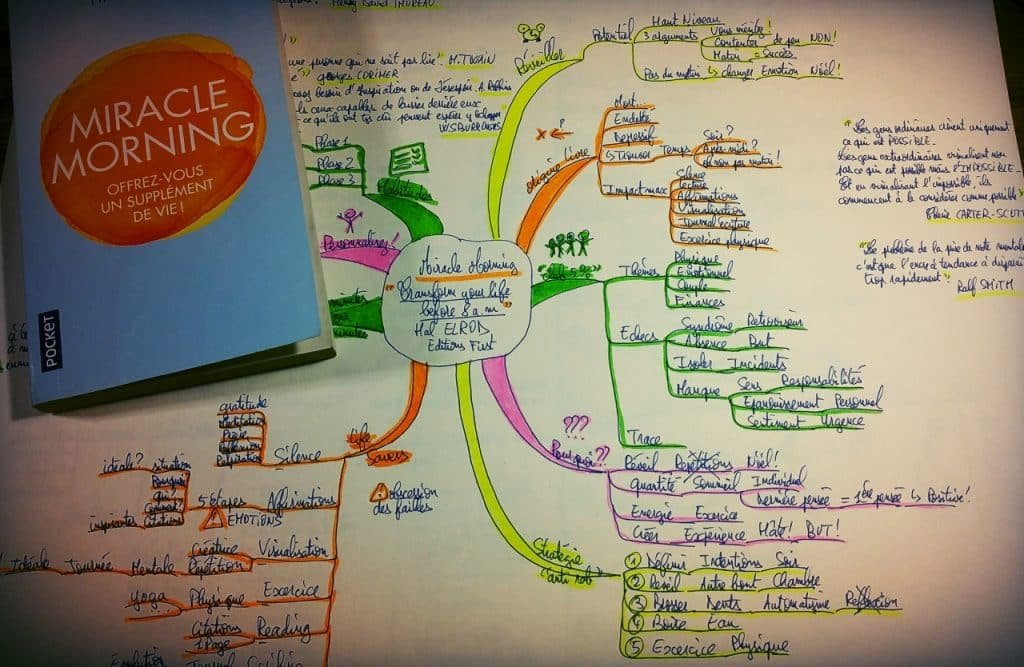 MIRACLE
MORNING
OFFREZ-VOUS
UN SUPPLÉMENT
DE VIE !
POCKET
Henry David THOREAU
une personne qui ne sait pas lire" M. TWAIN
besoin d'Inspiration ou de Désespoir. A. Robbins
Miracle Morning
"Transform your life
before 8 a.m"
Hal ELROD
Editions First
Réveiller
Potentiel
Haut Niveau
3 arguments
Vous méritez!
Contenter de peu NON!
Matin = Succès
Pas du matin ↳ changer Emotion Noël!
Origine livre
Mort...
Endetté
Depressif
↳ Trouver Temps
Soir?
Après-midi?
Impact maxi
Silence
Lecture
Affirmations
Visualisation
Journal écriture
Exercice physique
"Les gens ordinaires vivent uniquement
ce qui est POSSIBLE.
Les gens extraordinaires visualisent non
pas ce qui est possible mais l'IMPOSSIBLE.
Et en visualisant l'impossible, ils
commencent à le considérer comme possible"
CARTER-SCOTT
"Le problème de la mentale
c'est que l'encre à tendance à disparaitre
trop rapidement"
Ralf SMITH
Thèmes
Physique
Emotionnel
Couple
Finances
Echecs
Syndrôme Rétroviseur
Absence But
Isoler Incidents
Manque
Sens Responsabilités
Epanouissement Personnel
Sentiment Urgence
Trace
???
Pourquoi??
Réveil Répétitions Noël!
Quantité / Sommeil Individuel
Dernière pensée = 1ère pensée ↳ Positive!
Energie Exercice
Créer Expérience Hâte! BUT!
Stratégie
① Définir Intentions Soir
② Réveil Autre bout Chambre
③ Brosser Dents Automatique Réflexion
④ Boire Eau
⑤ Exercice Physique
Habitudes
Phase 1
Phase 2
Phase 3
Personnalisez!
minutes
Life
Savers
! obsession
des failles
Silence
gratitude
Méditation
Prière
Réflexion
Respiration
5 étapes Affirmations
! EMOTIONS
idéale? situation
Pourquoi
Qui
Comment
inspirantes Citations
Visualisation
Créatrice
Répétition Mentale Journée Idéale
Exercice Physique Yoga
Reading
Citations
1 Page